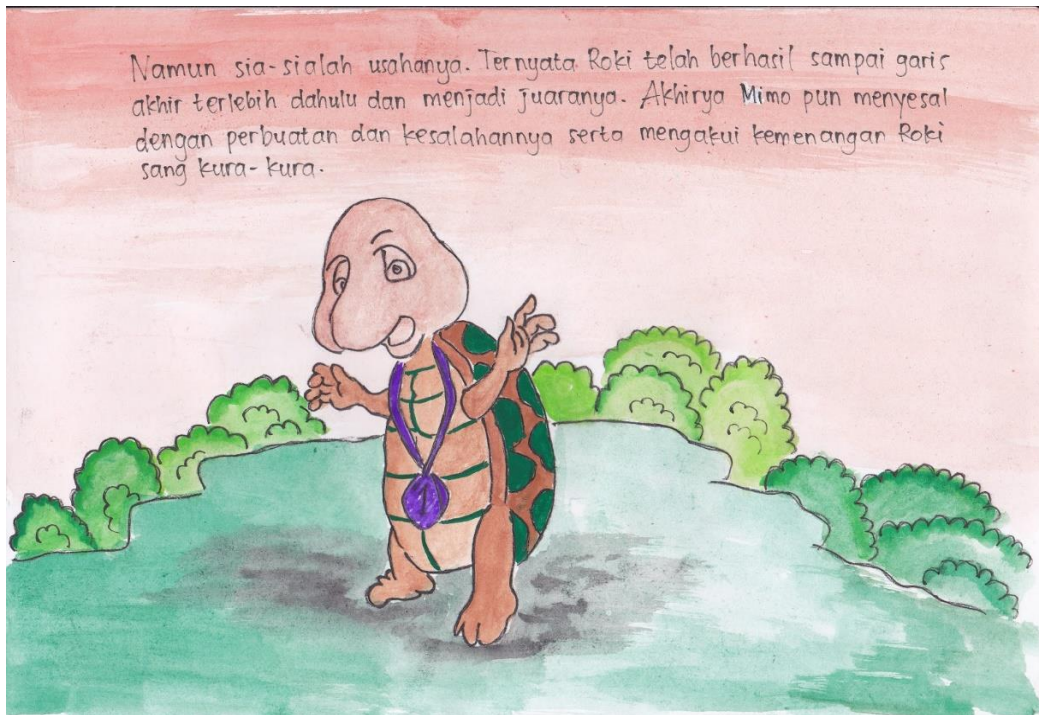 Namun sia-sialah usahanya. Ternyata Roki telah berhasil sampai garis
akhir terlebih dahulu dan menjadi juaranya. Akhirya Mimo pun menyesal
dengan perbuatan dan kesalahannya serta mengakui kemenangan Roki
sang kura-kura.
1